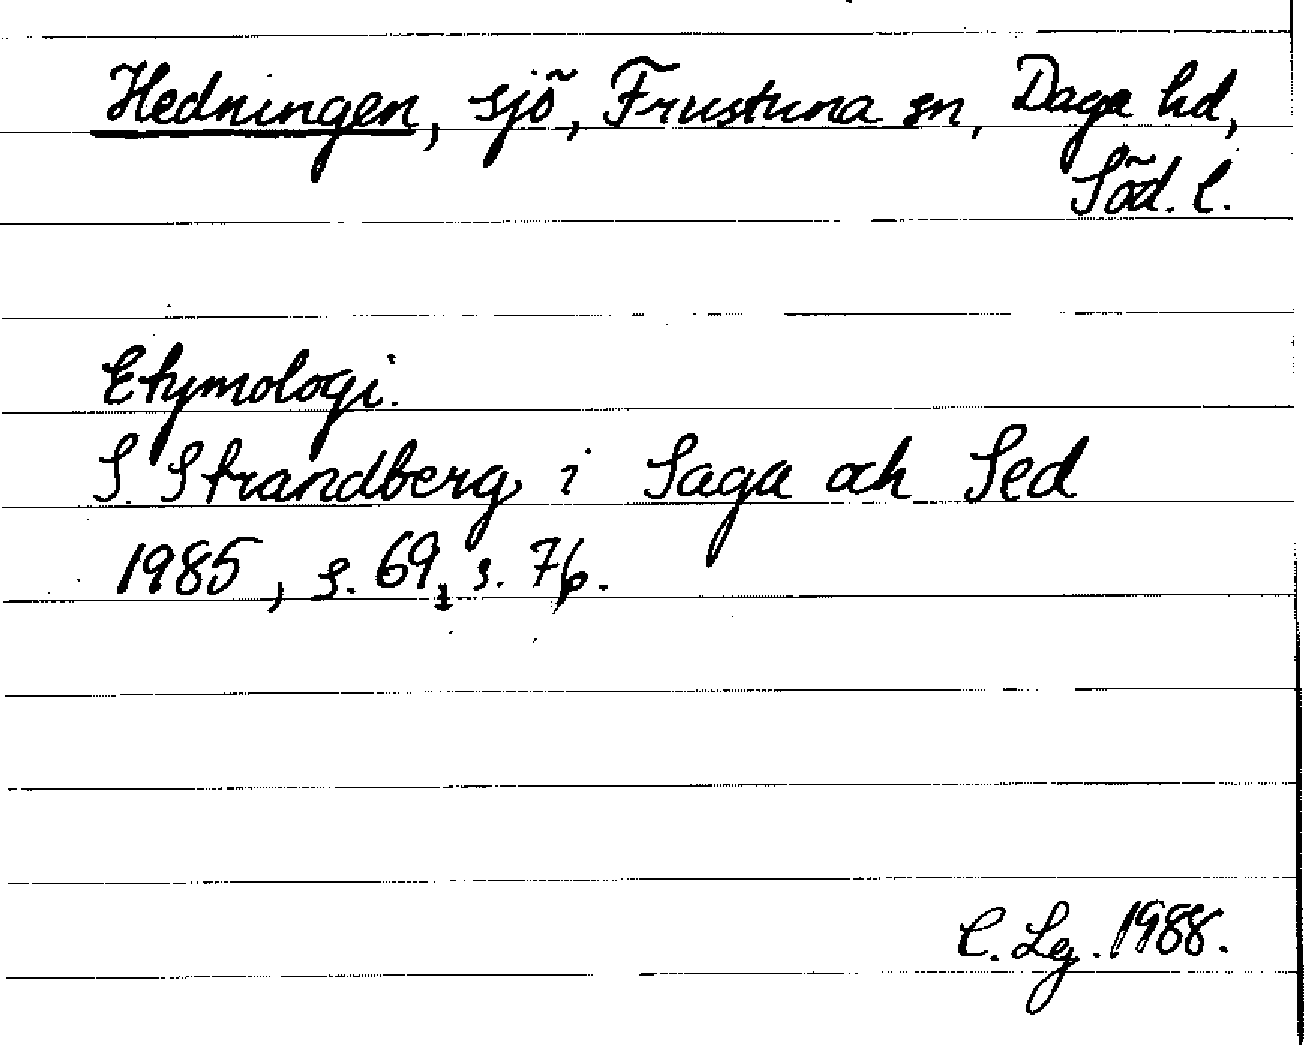 Hedningen, sjö, Frustuna sn, Daga hd,
Söd. l.
Etymologi.
S. Strandberg i Saga och Sed
1985, s. 69, s. 76.
C. Lg. 1988.